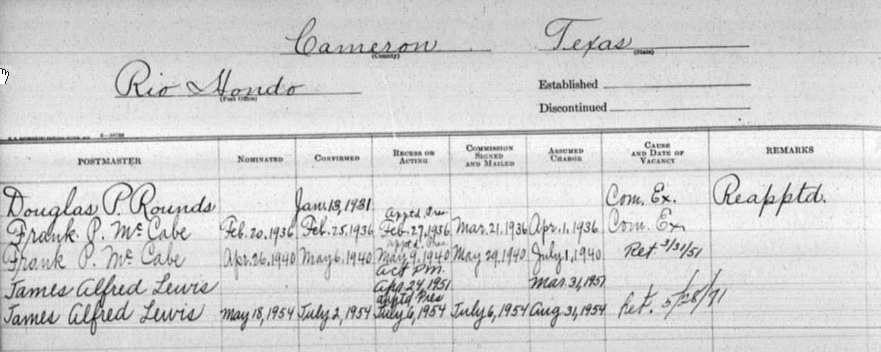 Cameron Texas
(County) (State)
Rio Hondo
(Post Office)
Established
Discontinued
POSTMASTER NOMINATED CONFIRMED RECESS OR ACTING COMMISSION SIGNED AND MAILED ASSUMED CHARGE CAUSE AND DATE OF VACANCY REMARKS
Douglas P. Rounds Jan. 13, 1931 Com. Ex. Reapptd.
apptd. Pres
Frank P. McCabe Feb. 20, 1936 Feb. 25, 1936 Feb. 27, 1936 Mar. 21, 1936 Apr. 1, 1936 Com. Ex
apptd. Pres
Frank P. McCabe Apr. 26, 1940 May 6, 1940 May 9, 1940 May 29, 1940 July 1, 1940 Ret 3/31/51
Act PM.
James Alfred Lewis Apr. 24, 1951 Mar. 31, 1951
apptd Pres
James Alfred Lewis May 18, 1954 July 2, 1954 July 6, 1954 July 6, 1954 Aug 31, 1954 Ret. 5/28/71